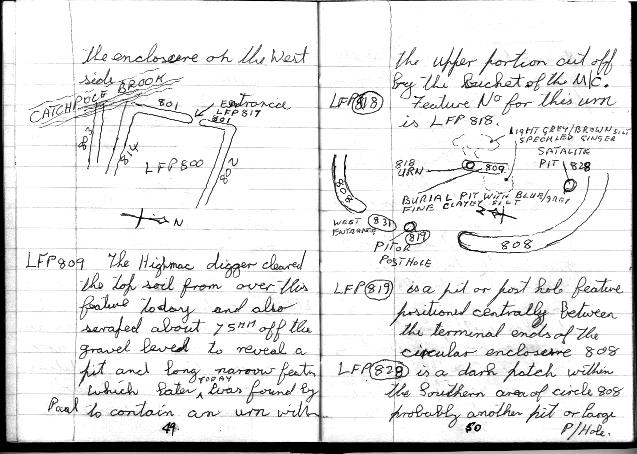 the enclosere on the West
side
CATCHPOLE BROOK
801
Entrance
LFP 817
801
803
814
LFP 800
802
N
LFP 809 The Highmac digger cleared
the top soil from over this
feature today and also
scraped about 75MM off the
gravel leved to reveal a
pit and long narrow featr
which later TODAY was found by
Paul to contain an urn with
49
the upper portion cut off
by the Bucket of the M/C.
LFP 818 Feature No for this urn
is LFP 818.
LIGHT GREY/BROWN SILT
SPECKLED GINGER
SATALITE
PIT 828
818
URN
809
808
BURIAL PIT WITH BLUE/GREY
FINE CLAYEY SILT
N
WEST
ENTRANCE
831
819
PIT OR
POST HOLE
808
LFP 819 is a pit or post hole feature
positioned centrally between
the terminal ends of the
circular enclosere 808
LFP 828 is a dark patch within
the Southern area of circle 808
probably another pit or large
P/Hole.
50